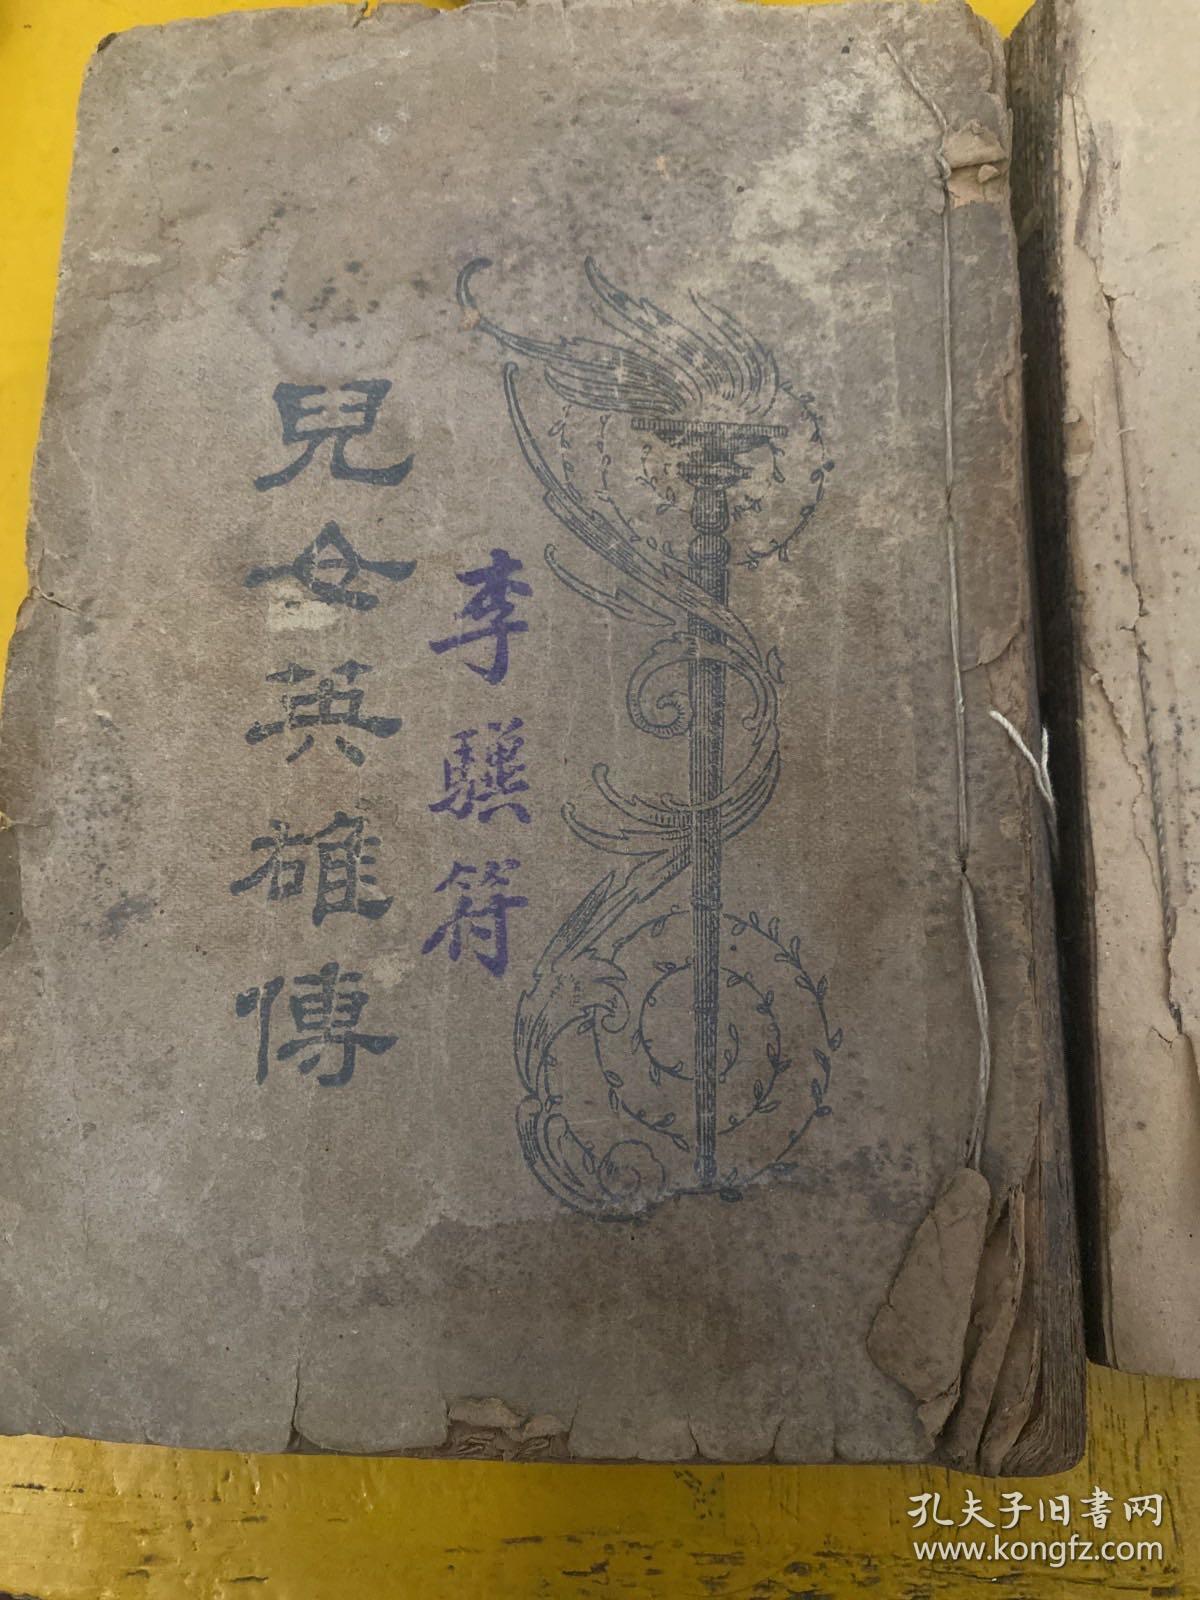 兒女英雄傳
李驥符
孔夫子旧書网
www.kongfz.com